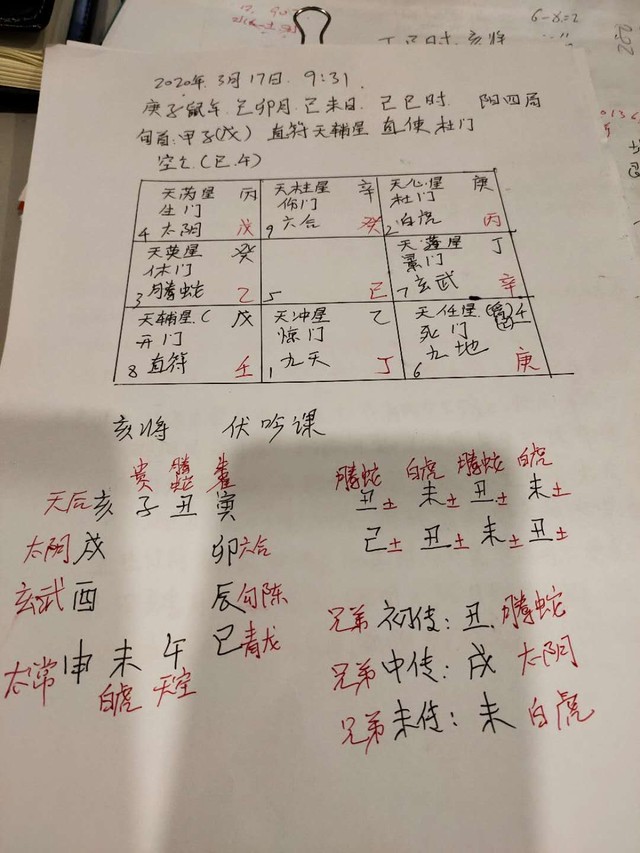 6-8=2
2020年.3月17日.9:31
庚子鼠年.己卯月.己未日.己巳时. 阳四局
旬首:甲子(戊) 直符天辅星 直使杜门
空亡(巳.午)
天芮星 丙
生门
4 太阴 戊
天柱星 辛
伤门
9 六合 癸
天心星 庚
杜门
2 白虎 丙
天英星 癸
休门
3 腾蛇 乙
5 己
天蓬星 丁
景门
7 玄武 辛
天辅星 戊
开门
8 直符 壬
天冲星 乙
惊门
1 九天 丁
天任星
死门
九地
6 庚
亥将 伏吟课
贵 腾蛇
天后 亥 子 丑 寅
太阴 戌 卯 六合
玄武 酉 辰 勾陈
太常 申 未 午 巳 青龙
白虎 天空
腾蛇 白虎 腾蛇 白虎
丑土 未土 丑土 未土
己土 丑土 未土 丑土
兄弟 初传: 丑 腾蛇
兄弟 中传: 戌 太阴
兄弟 末传: 未 白虎